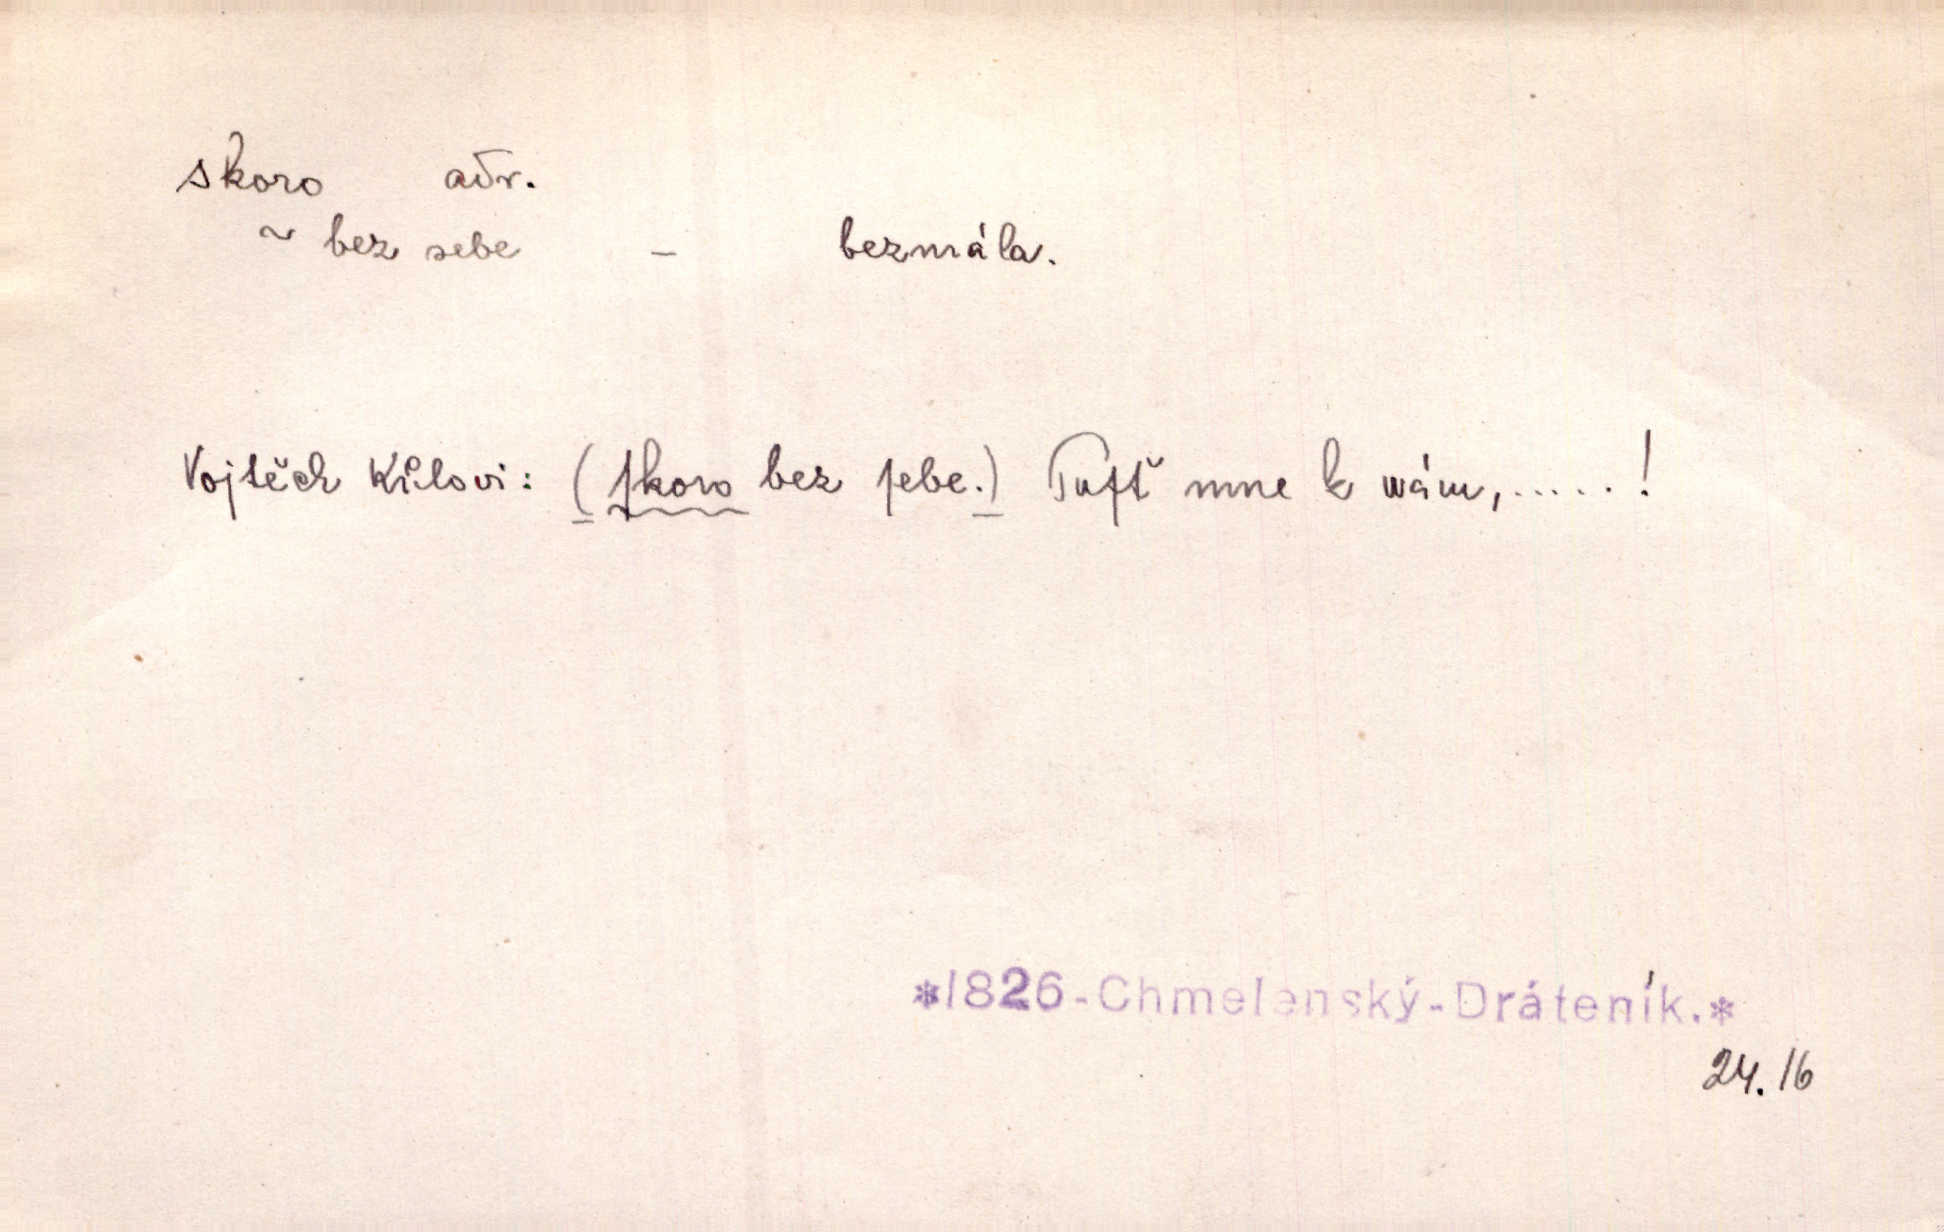 skoro adv.
~ bez sebe – bezmála.
Vojtěch Kůlovi: (ſkoro bez ſebe.) Tuſť mne k wám,.....!
*1826-Chmelenský-Dráteník.*
24.16